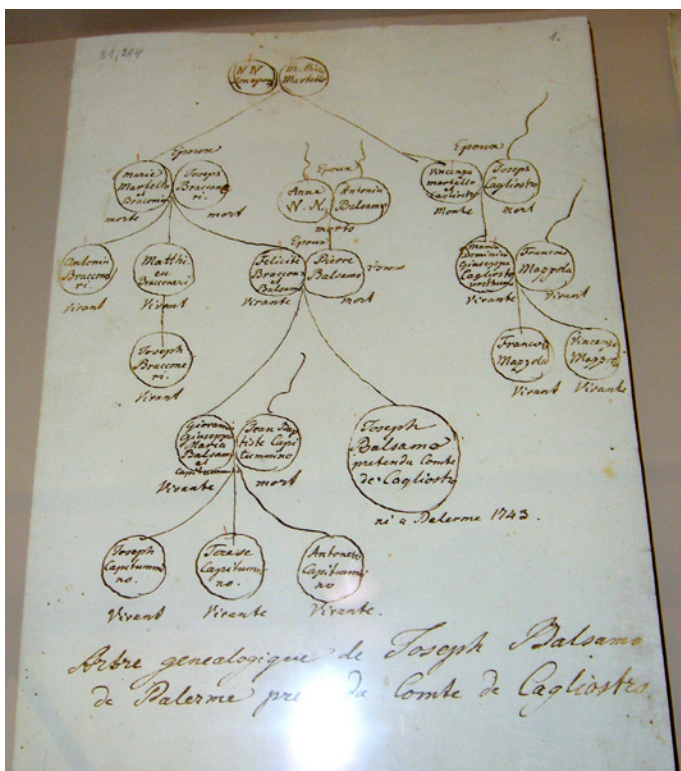 31,284
1.
Martello
Epoux
Marie
Martello
et
Joseph
Bracconeri.
morte
mort
Epoux
Anne
N. N.
Antonin
Balsamo
morts
Epoux
Vincenza
martello
et
Cagliostro
Joseph
Cagliostro
Morte
Mort
Antonin
Bracconeri.
Vivant
Matthi
eu
Bracconeri
Vivant
Epoux
Felicité
Braccon
et
Balsamo
Vivante
Pierre
Balsamo
mort
Dominica
Giuseppa
Cagliostro
Vivante
Francois
Mazzola
Vivant
Joseph
Bracconeri.
Vivant
Francois
Mazzola
Vivant
Vincenzo
Mazzola
Vivante
Giovana
Giuseppe
Maria
Balsamo
et
Capitummino
Vivante
Jean Bap
tiste Capi
tummino
mort
Joseph
Balsamo
pretendu Comte
de Cagliostro
né a Palerme 1743.
Joseph
Capitummi
no.
Vivant
Terese
Capitummi
no.
Vivante
Antonete
Capitummi
no
Vivante.
Arbre genealogique de Joseph Balsamo
de Palerme Comte de Cagliostro